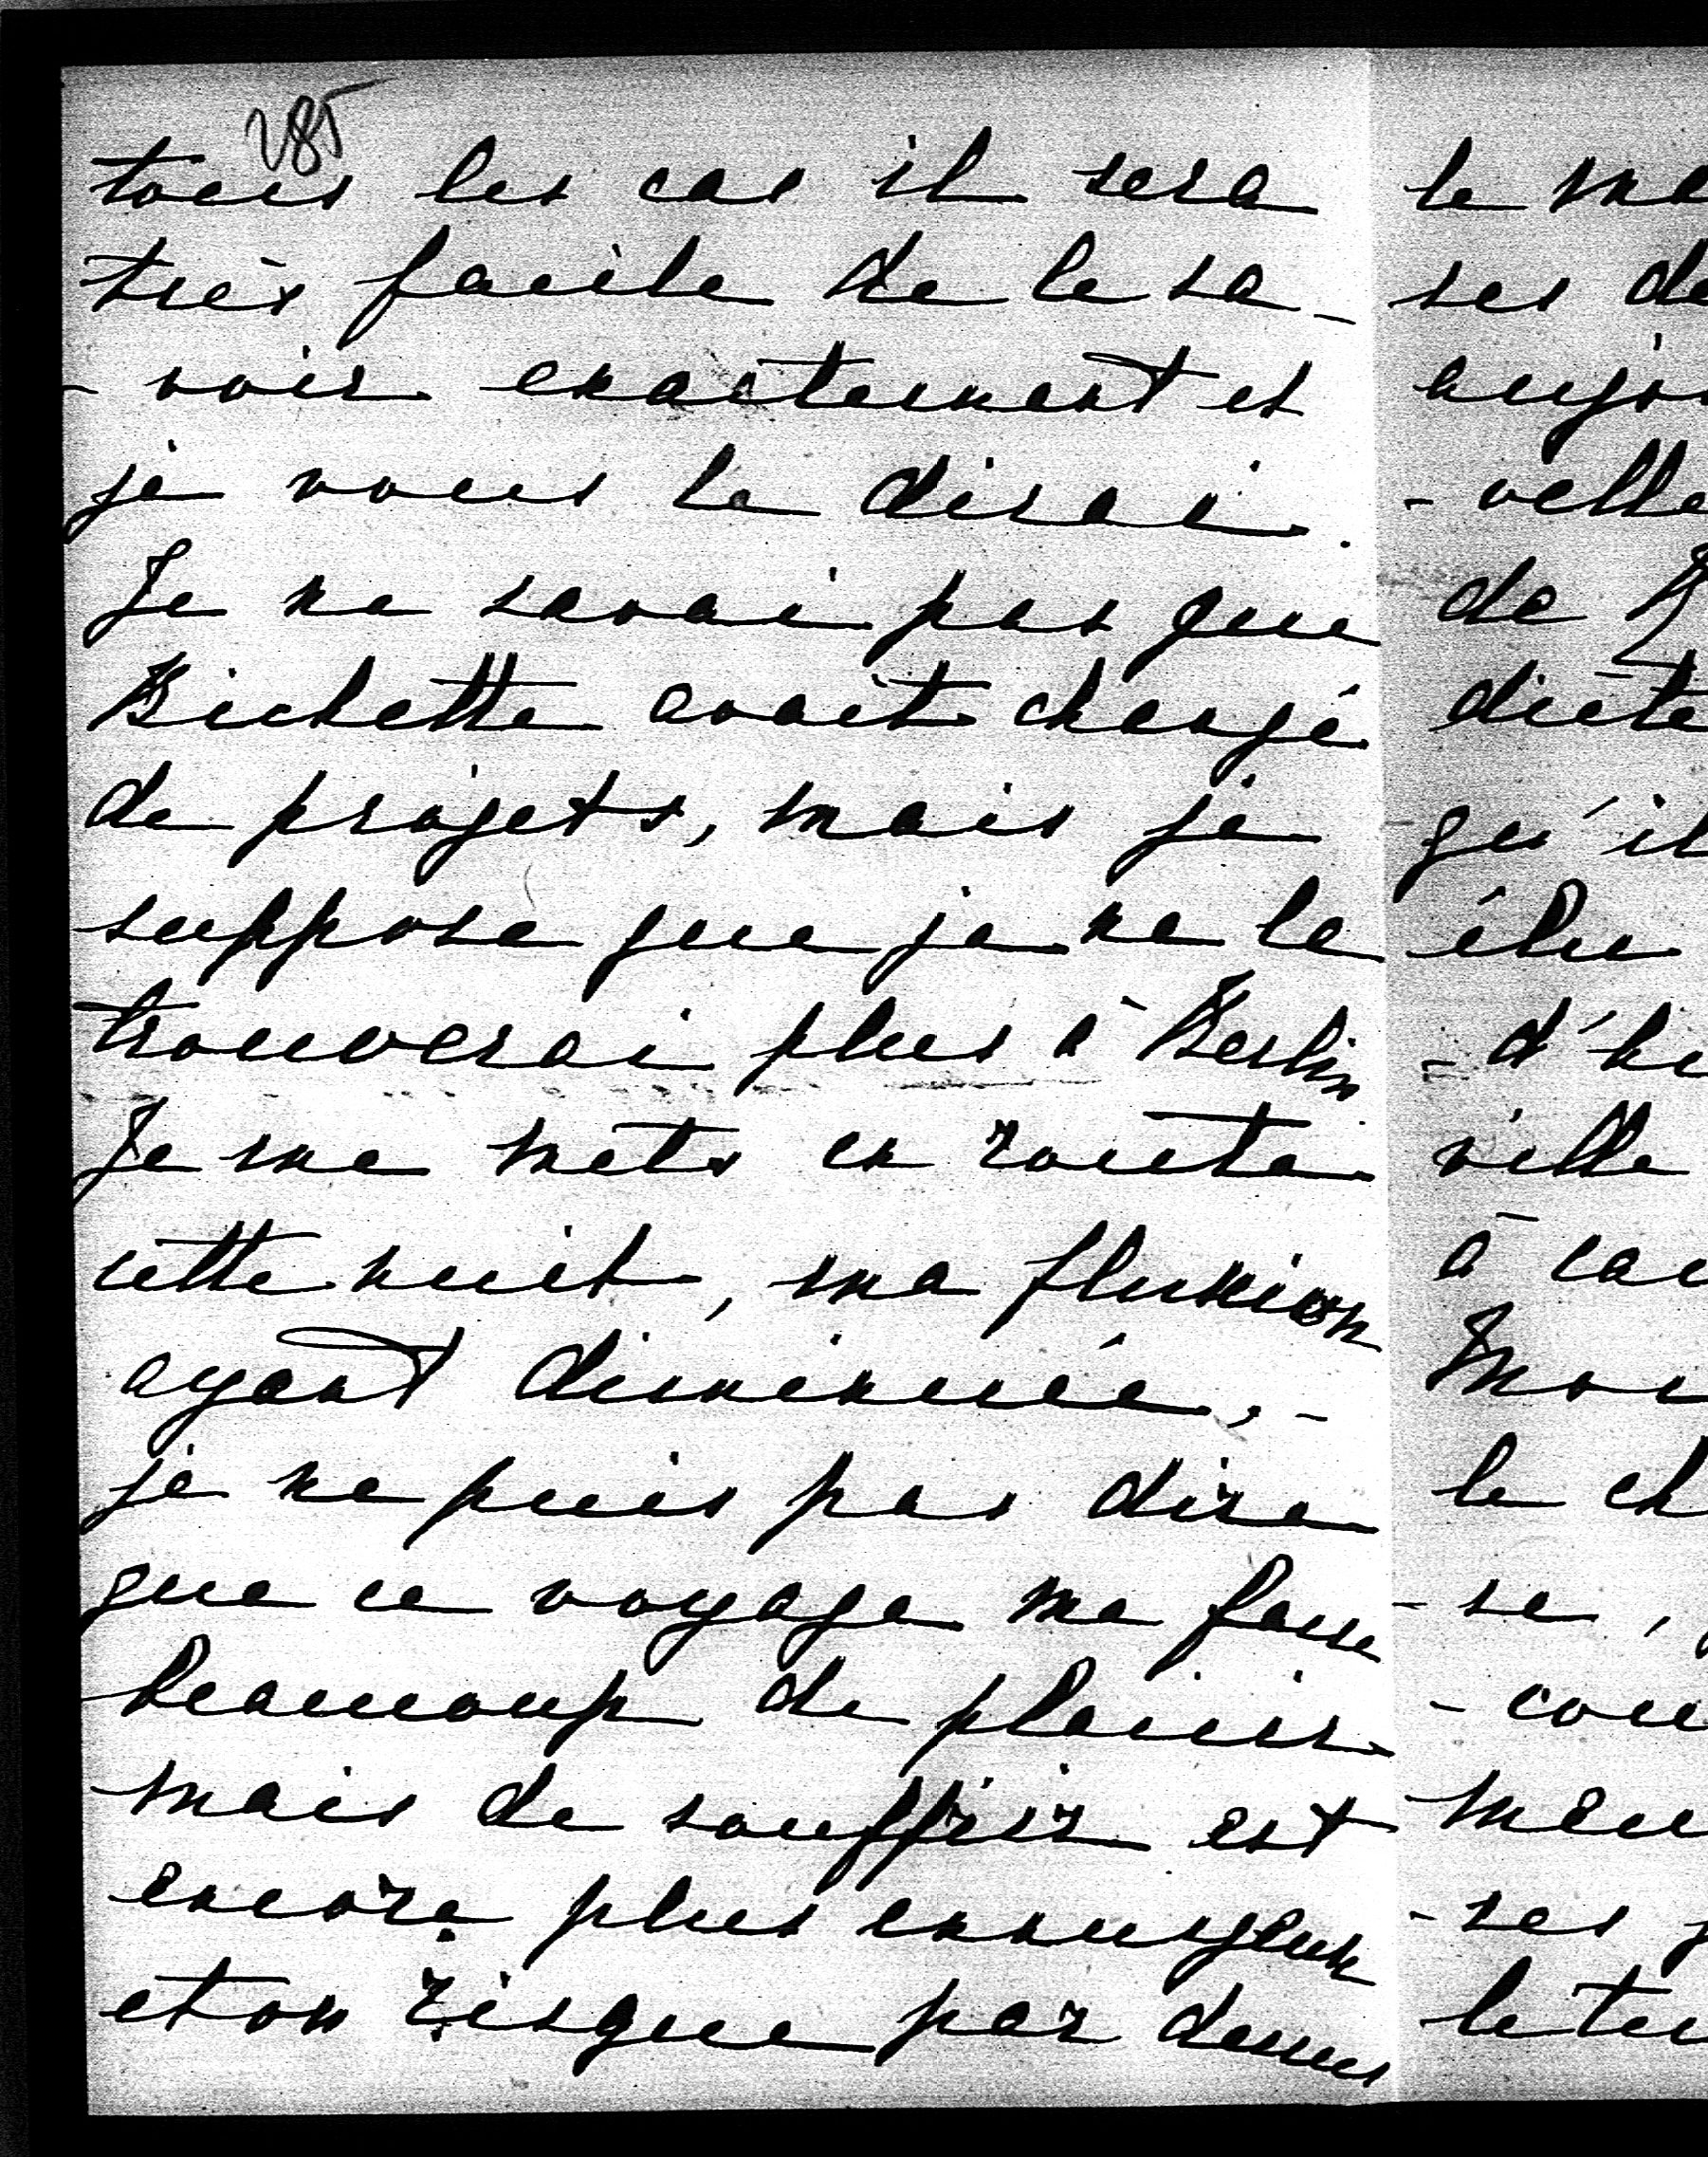 285
tous les cas il sera
très facile de le sa-
-voir exactement et
je vous le dirai.
Je ne savai pas que
Bichette avait changé
de projets, mais je
suppose que je ne la
trouverai plus à Berlin.
Je me mets en route
cette nuit, ma fluxion
ayant diminuée, -
je ne puis pas dire
que ce voyage me fasse
beaucoup de plaisir
mais de souffrir est
encore plus ennuyeux
et on risque par dessus
le
ses
-velle
de
qu'il
élu
ville
à
le
-se,
-ses